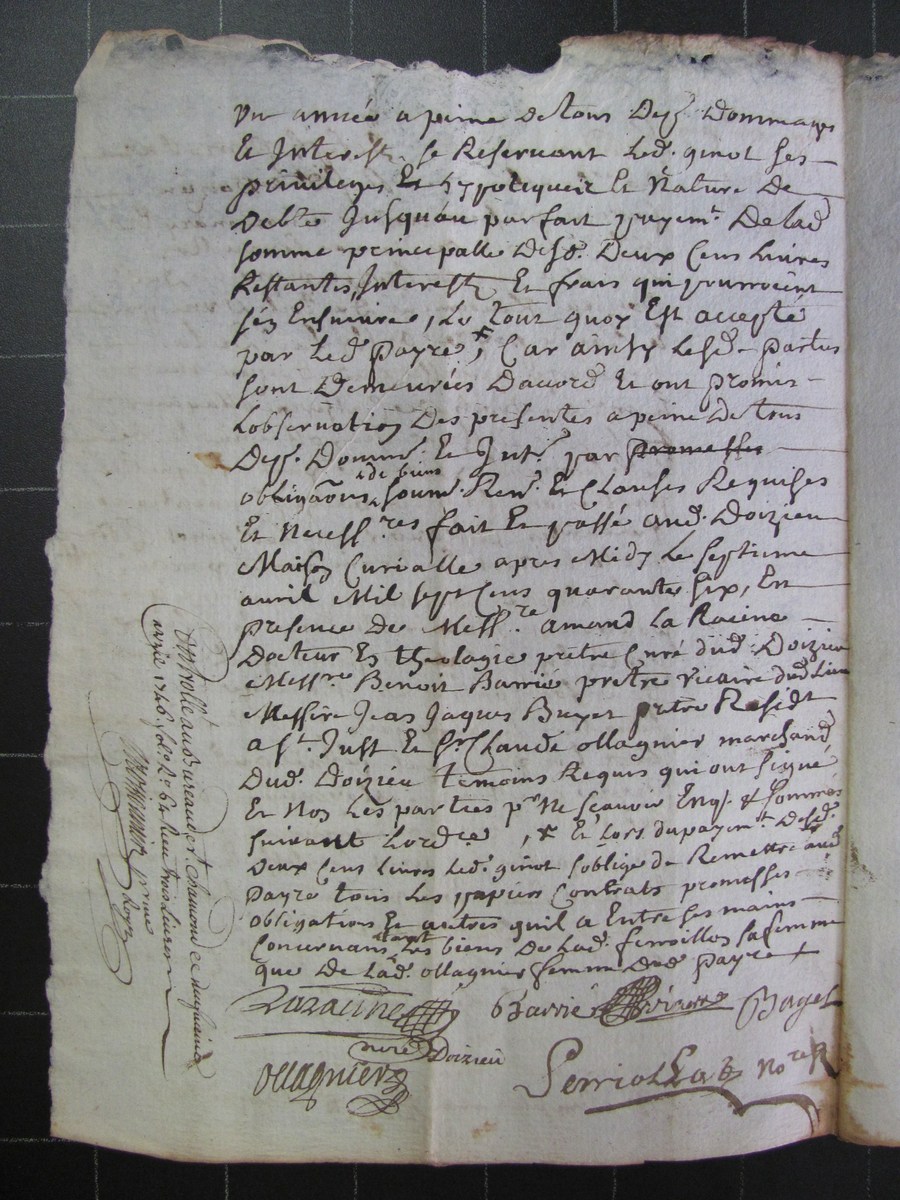 un année a peine de tous Desp. Dommages
Et Interests se Reservant Led. ginot ses
privileges Et hypotequeir Et Nature de
Debte Jusquau parfait payemt. De lad
somme principalle desd. Deux Cens Livres
Restantes, Interests Et frais qui pourroient
sen Ensuivre, Le tout quoy Est accepté
par Led payre *, Car ainsy Lesd. parties
sont Demeurées Dacord Et ont promis
Lobservation Des presentes a peine de tous
Desp. Domm. Et Int. par promesses
obligaõns de biens soum. Ren. Et Clauses Requises
Et Necessres fait Et passé aud. Doizieu
Maison Curialle apres Midy Le septieme
avril Mil sept Cens quarante six, En
presence de Messre. amand La Racine
Docteur En theologie prètre Curé dud. Doizieu
Messre. Benoit Barrié prètre vicaire dud Lieu
Messire Jean Jaques Buyet prètre Residt
a St. Just Et Sr. Claude ollagnier marchand
Dud. Doizieu temoins Requis qui ont signé
Et Non Les parties pr Ne scavoir Enq. & sommés
suivant Lordce, * Et Lors du payemt. Desd.
Deux Cens Livres Led. ginot soblige de Remettre aud
Payre tous Les papiers Contrats promesses
obligations Et autres quil a Entre ses mains
Concernans tant Les biens De Lad. fensillon sa femme
que De Lad. ollagnier femme Dud payre +
Laracine Barrié vicaire Buyet
curé Doizieu
ollagnier Perriol Nore R
Controllé au Bureau de St. chamond ce
avril 1746. fol. 64 Reçu trois Livres